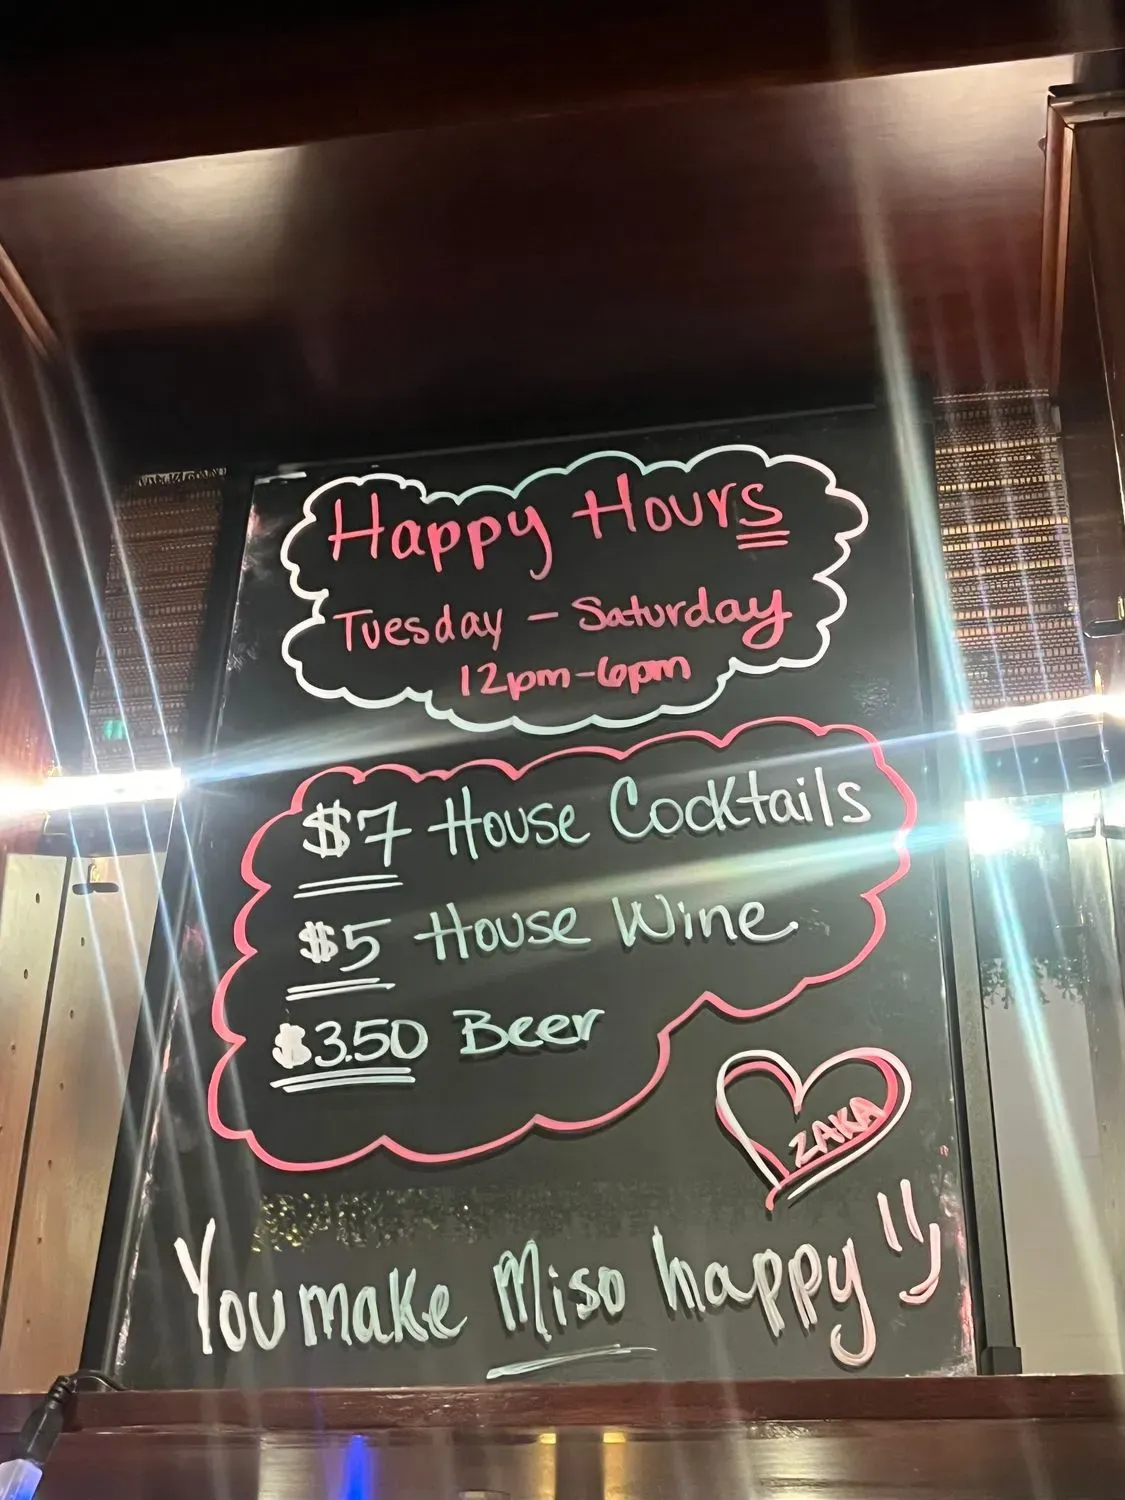 Happy Hours
Tuesday - Saturday
12pm-6pm
$7 House Cocktails
$5 House Wine
$3.50 Beer
ZAKA
You make Miso happy